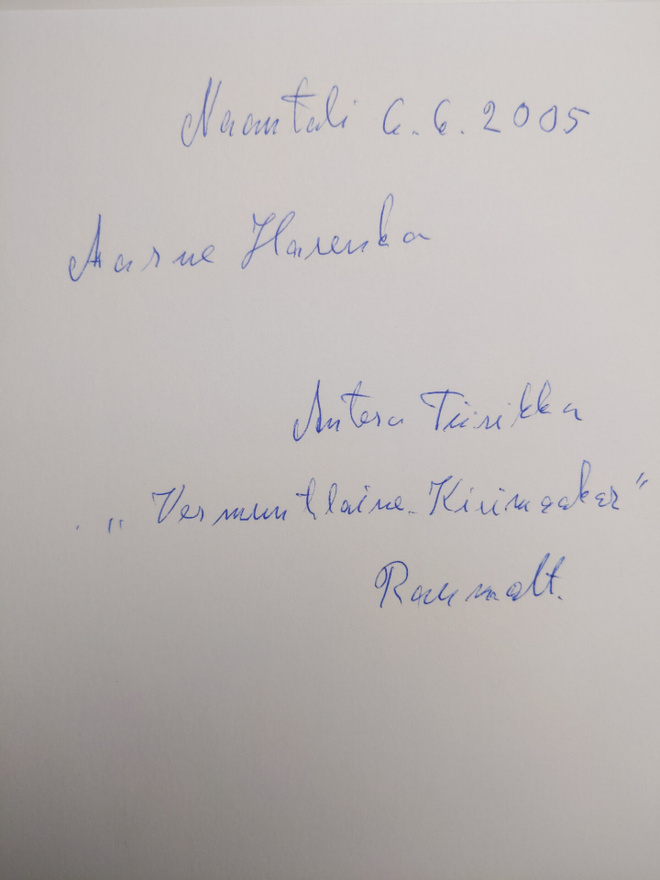 Naantali 6.6.2005
Aarne Harenka
Antero Tiirikka
„Vermuntlaine-Kirimaakar"
Raumalt.